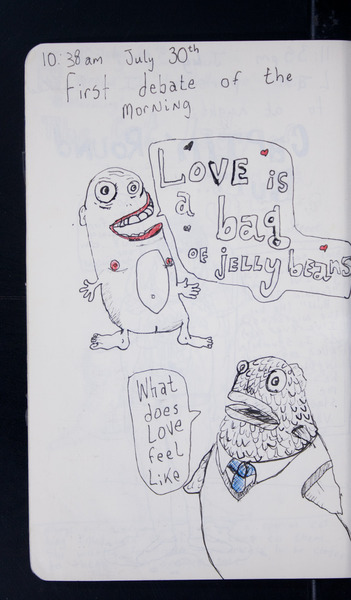 10:38am July 30th
First debate of the
morning
LOVE is
a bag
OF jELLY beans
What
does
LOVE
feel
Like